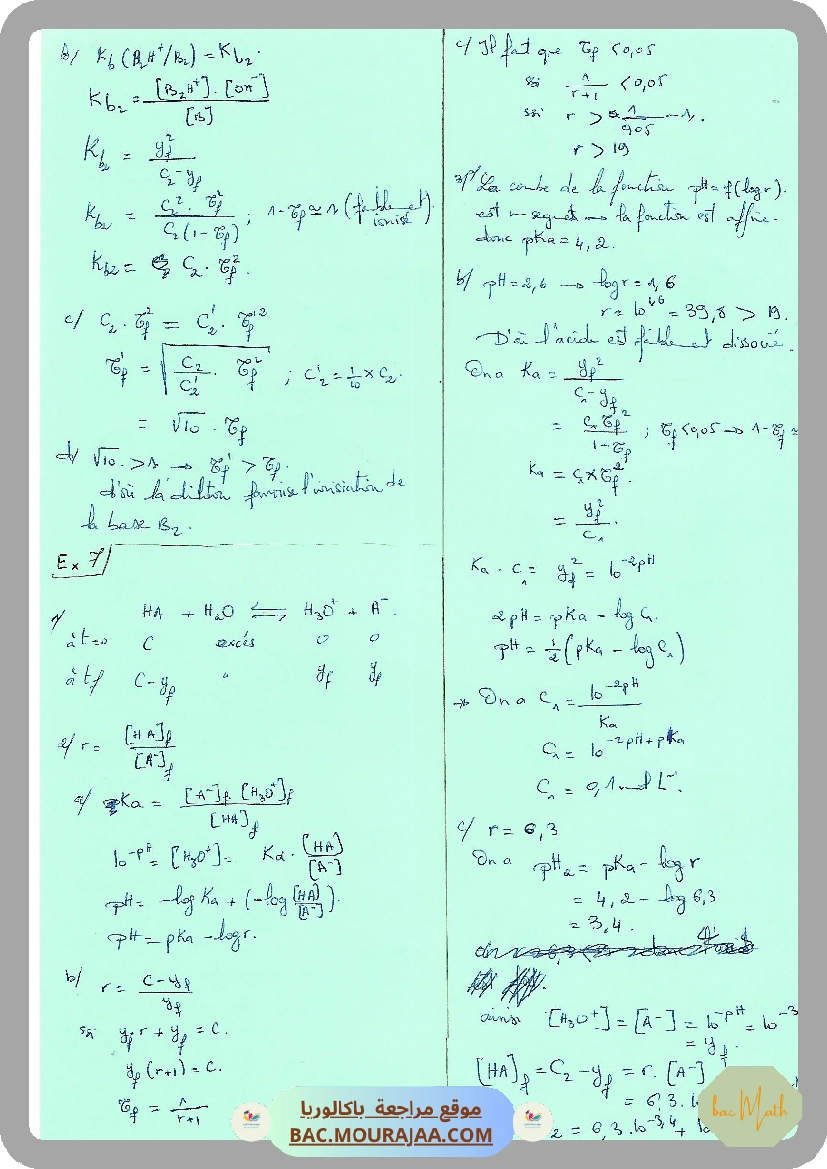 b/ Kb (B2H+/B2) = Kb2.
Kb2 = [B2H+].[OH-] / [B]
Kb2 = yf² / (C2 - yf)
Kb2 = C2². τf² / C2(1-τf) ; 1-τf ≃ 1 (faiblement ionisé)
Kb2 = C2. τf².
c/ C2. τf² = C'2. τ'f²
τ'f = √(C2/C'2 . τf²) ; C'2 = 1/10 × C2.
= √10 . τf
d/ √10 > 1 → τ'f > τf.
d'où la dilution favorise l'ionisation de
la base B2.
Ex 7/
1/ HA + H2O ⇌ H3O+ + A-.
à t=0 C excés 0 0
à tf C-yf " yf yf
2/ r = [HA]f / [A-]f
a/ Ka = [A-]f.[H3O+]f / [HA]f
10^-pH = [H3O+] = Ka . [HA] / [A-]
pH = -log Ka + (-log [HA]/[A-]).
pH = pKa - log r.
b/ r = (C-yf) / yf
ssi yf.r + yf = C.
yf(r+1) = C.
τf = 1/(r+1)
c/ Il fait que τf < 0,05
ssi 1/(r+1) < 0,05
ssi r > 1/0,05 - 1.
r > 19
3/ a/ La courbe de la fonction pH = f(log r).
est un segment → la fonction est affine.
donc pKa = 4,2.
b/ pH = 2,6 → log r = 1,6
r = 10^1,6 = 39,8 > 19.
D'où l'acide est faiblement dissocié.
On a Ka = yf² / (C1 - yf)
= C1 τf² / (1-τf) ; τf < 0,05 → 1-τf ≃
Ka = C1 × τf².
= yf² / C1.
Ka . C1 = yf² = 10^-2pH
2pH = pKa - log C1.
pH = 1/2 (pKa - log C1)
→ On a C1 = 10^-2pH / Ka
C1 = 10^(-2pH + pKa)
C1 = 0,1 mol L^-1.
c/ r = 6,3
On a pH2 = pKa - log r
= 4,2 - log 6,3
= 3,4.
ainsi [H3O+] = [A-] = 10^-pH = 10^-3
= yf
[HA]f = C2 - yf = r. [A-]
= 6,3.
2 = 6,3 . 10^-3,4 + 10
bac Math
موقع مراجعة باكالوريا
BAC.MOURAJAA.COM